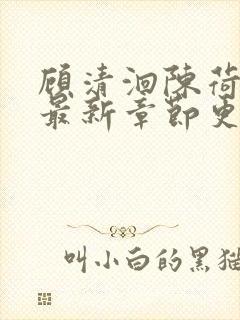 顾清洄陈荷
最新章节更
叫小白的黑猫